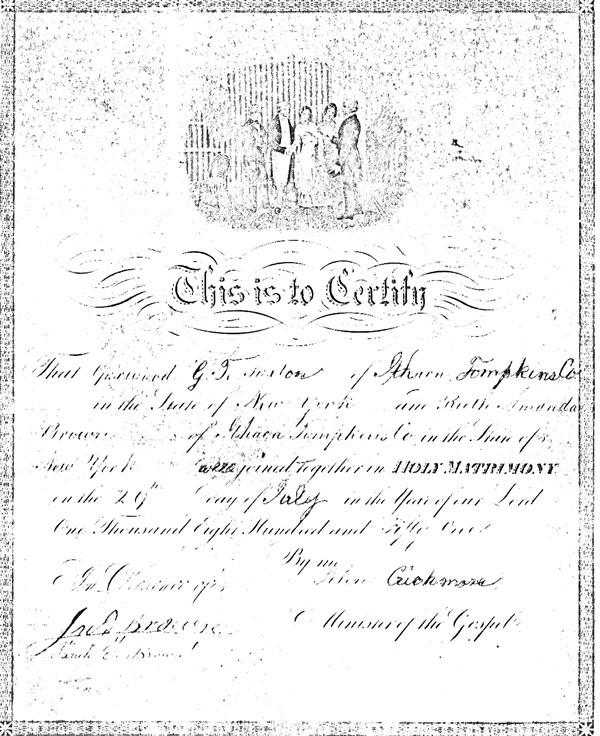 This is to Certify
That G. T. of Ithaca Tompkins Co
in the State of New York and Ruth Amanda
Brown of Ithaca Tompkins Co in the State of
New York were joined together in HOLY MATRIMONY
on the 29th Day of July in the Year of our Lord
One Thousand Eight Hundred and Fifty One
By me
In Presence of
Minister of the Gospel
Brown
Sarah Brown